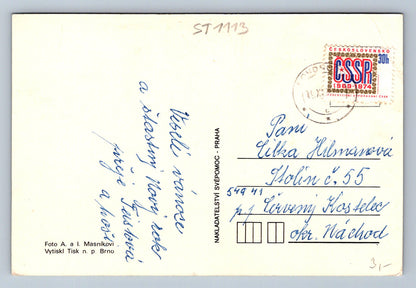 ST1113
ČESKOSLOVENSKO
30h
ČSSR
1969 1974
Veselé vánoce
a šťastný Nový rok
přeje
a pošt
Foto A. a I. Masníkovi
Vytiskl Tisk n. p. Brno
NAKLADATELSTVÍ SVÉPOMOC - PRAHA
Paní
Lilka Hilmanová
Stolín č. 55
549 41
p. Červený Kostelec
okr. Náchod
3,-